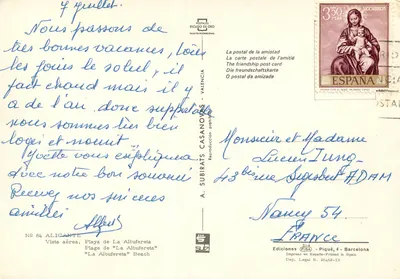 7 Juillet.
Nous passons de
très bonnes vacances, tous
les jours le soleil, il
fait chaud mais il y
a de l'air. donc supportable
nous sommes très bien
logés et nourrit
Yvette vous expliquera
avec notre bon souvenir
Recevez nos sincères
amitiés
Alfred
ALICANTE
Vista aérea. Playa de La Albufereta
Plage de "La Albufereta"
"La Albufereta" Beach
A. SUBIRATS CASANOVAS
VALENCIA
La postal de la amistad
La carte postale de l'amitié
The friendship post card
Die freundschaftskarte
O postal da amizade
3,50 PTAS
CORREOS
ESPAÑA
Monsieur et Madame
Lucien Jung
43 bis rue Sigisbert ADAM
Nancy 54.
FRANCE
Ediciones
Piqué, 4 - Barcelona